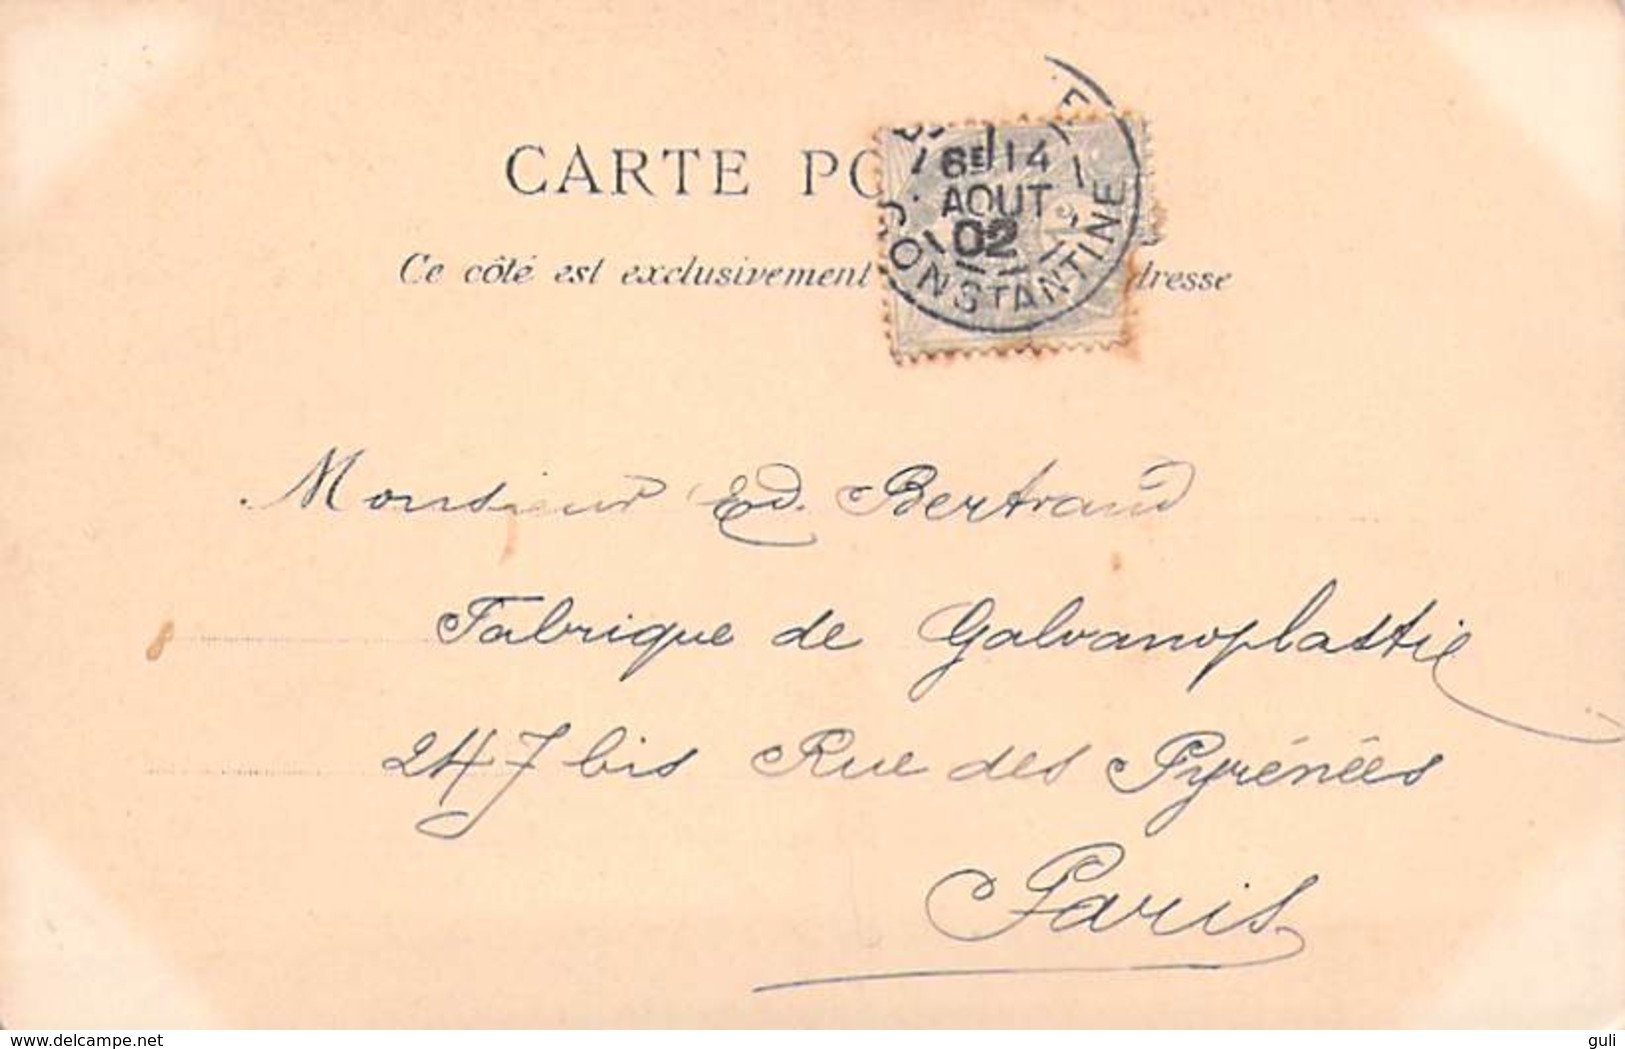 CARTE PO
Ce côté est exclusivement dresse
6E 14
AOUT
02
CONSTANTINE
Monsieur Ed. Bertrand
Fabrique de Galvanoplastie
247 bis Rue des Pyrénées
Paris
delcampe.net
guli